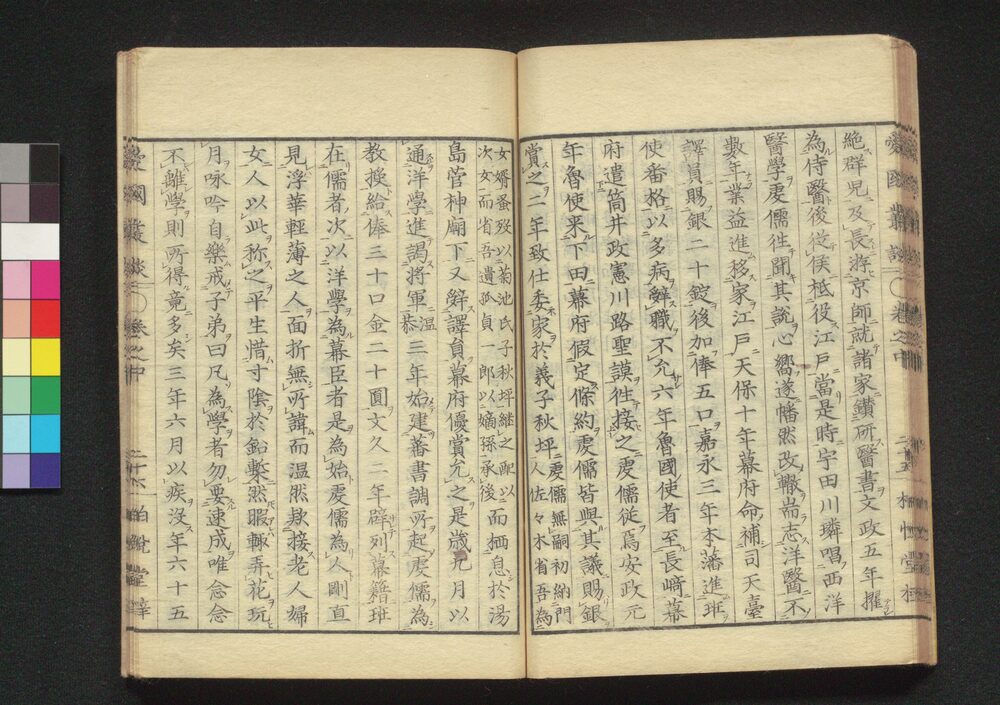 絶群児及長游京師就諸家鑽研醫書文政五年擢
為侍醫後從侯祗役江戸當是時宇田川璘唱西洋
醫學虔儒徃聞其說心嚮遂幡然改轍耑志洋醫不
數年業益進移家江戸天保十年幕府命補司天臺
譯員賜銀二十錠後加俸五口嘉永三年本藩進班
使番格以多病辭職不允六年魯國使者至長﨑幕
府遣筒井政憲川路聖謨徃接之虔儒從焉安政元
年魯使来下田幕府假定條約虔儒皆與其議賜銀
賞之二年致仕委家於義子秋坪
虔儒無嗣初納門
人佐々木省吾為
女婿蚤歿以菊池氏子秋坪継之配以
次女而省吾遺孤貞一郎以嫡孫承後
而栖息於湯
島菅神廟下又辭譯員幕府優賞允之是歳九月以
通洋學進謁將軍
温
恭
三年始建蕃書調所起虔儒為
教授給俸三十口金二十圓文久二年辟列幕籍班
在儒者次以洋學為幕臣者是為始虔儒為人剛直
見浮華輕薄之人面折無所諱而温然欵接老人婦
女人以此称之平生惜寸陰於鉛槧然暇輙弄花玩
月咏吟自樂戒子弟曰凡為學者勿要速成唯念念
不離學則所得竟多矣三年六月以疾没年六十五
愛國叢談
卷之中
二十六